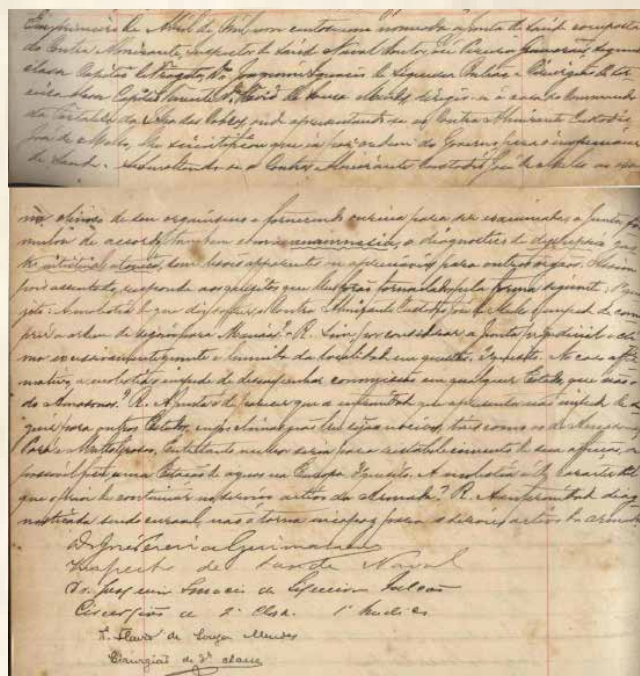 Em primeiro de Abril de mil nove centos e um nomeada a junta de Saude composta
do Contra Almirante, Inspector de Saude Naval Doutor José Pereira Guimarães, segunda
classe Capitão de Fragata, Dr. Joaquim Ignacio de Siqueira Bulcão e Cirurgião de ter
ceira classe Capitão Tenente Dr. Flavio de Souza Mendes, dirigio-se á casa do Commando
da Fortaleza da Ilha das Cobras, onde apresentando-se ao Contra Almirante Custodio
José de Mello, lhe scientificou que ia por ordem do Governo para o inspeccionar
de Saude. Submettendo-se o Contra Almirante Custodio José de Mello ao
de seu organismo e fornecendo ourina para ser examinada, a Junta for
mulou de accordo tambem com a anamnesia, o diagnostico de dyspepsia
intestinal atonica, sem lesões apparentes ou apreciaveis para outros orgãos.
foi assentado, responde aos quesitos que lhe forão formulados pela forma seguinte:
A molestia de que diz soffrer o Contra Almirante Custodio José de Mello impede de cum
prir a ordem de seguir para Manáos? R. Sim, por considerar a Junta prejudicial o cli
ma excessivamente quente e humido da localidade em questão. 2º quesito. No caso affir
mativo, a molestia impede de desempenhar commissão em qualquer Estado, que não o
do Amazonas? R. A Junta é de parecer que a enfermidade que apresenta não impede de se
guir para outros Estados, cujos climas não lhe sejão nocivos, taes como os do Amazonas,
Pará e Matto Grosso. Entretanto melhor seria para o restabelecimento de sua affecção, se
possivel fosse, uma Estação de aguas na Europa. 3º quesito. A molestia é de caracter tal
que o prive de continuar no serviço activo da Armada? R. A enfermidade diag
nosticada sendo curavel, não o torna incapaz para o serviço activo da armada.
Dr. José Pereira Guimarães
Inspector de Saude Naval
Dr. Joaquim Ignacio de Siqueira Bulcão
Cirurgião de 2ª classe
Dr. Flavio de Souza Mendes
Cirurgião de 3ª classe